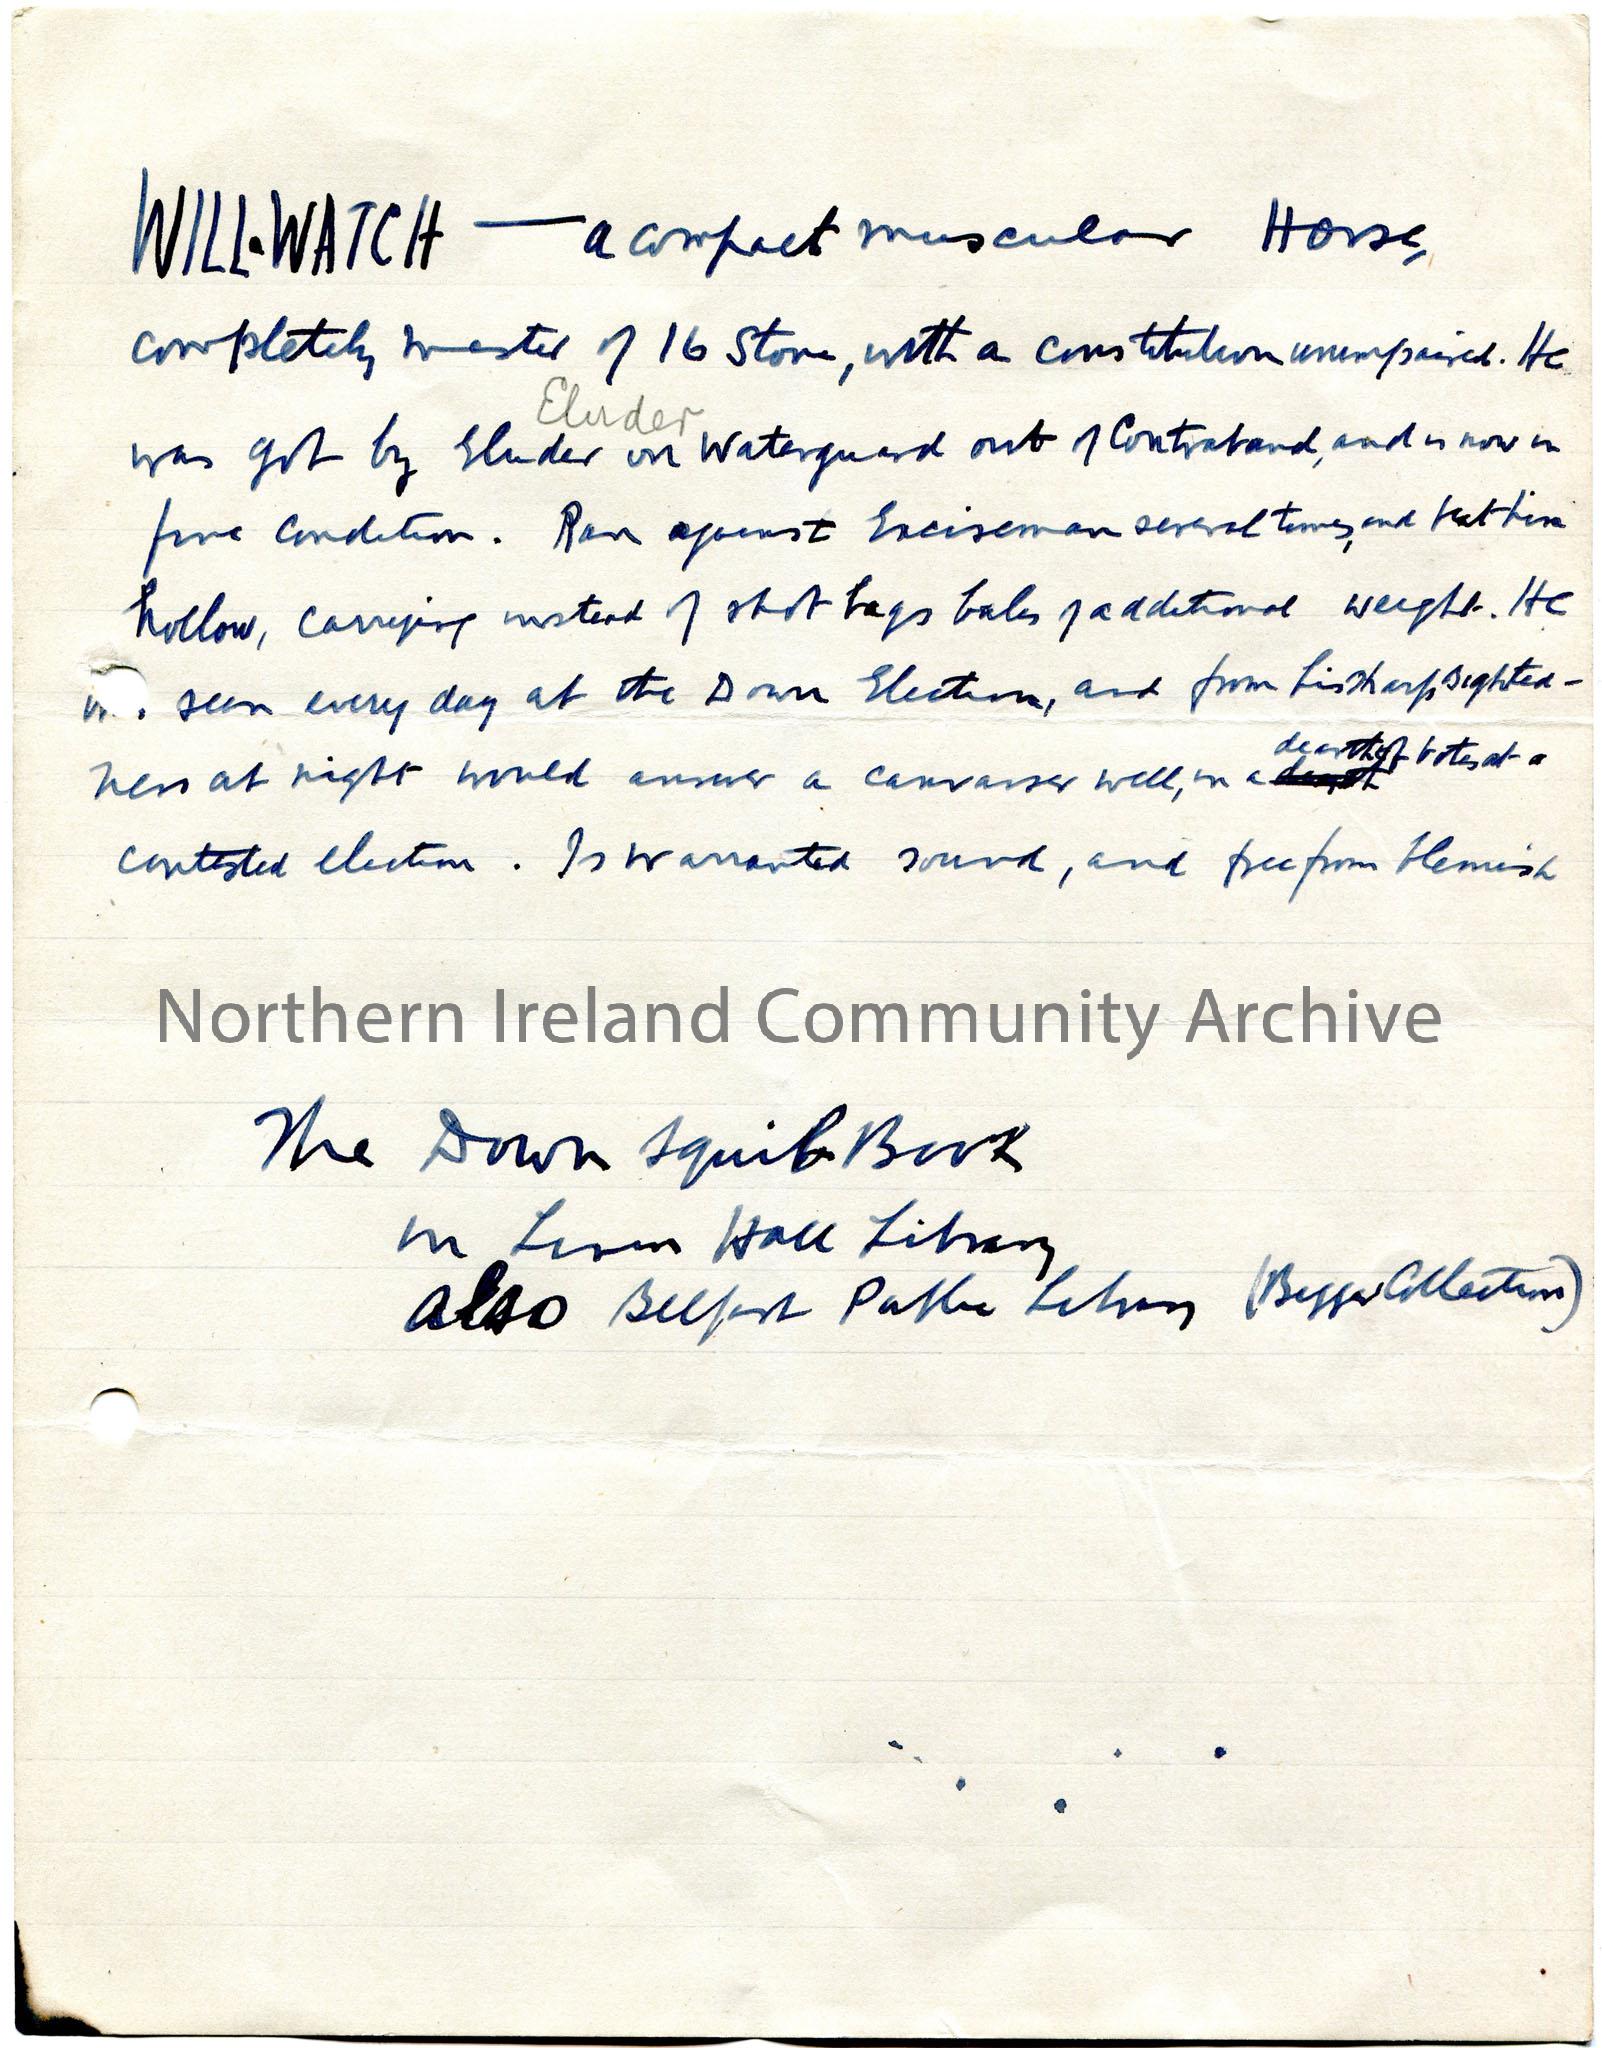 WILL-WATCH — a compact muscular Horse,
completely master of 16 Stone, with a constitution unimpaired. He
Eluder
was got by Eluder on Waterguard out of Contraband, and is now in
fine condition. Ran against Exciseman several times, and beat him
hollow, carrying instead of shot bags bales of additional weight. He
seen every day at the Down Election, and from his sharp sighted-
dearth of votes at a
ness at night would answer a canvasser well, in a
contested election. Is warranted sound, and free from blemish
Northern Ireland Community Archive
The Down Squib Book
in Linen Hall Library
also Belfast Public Library (Bigger Collection)